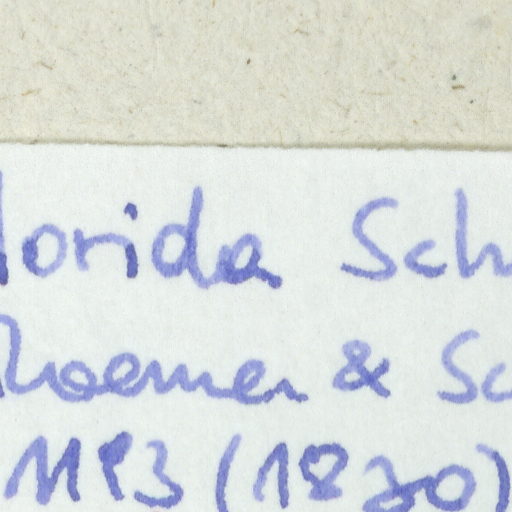 lorida Sch
Roemer & Sc
11193 (1820)